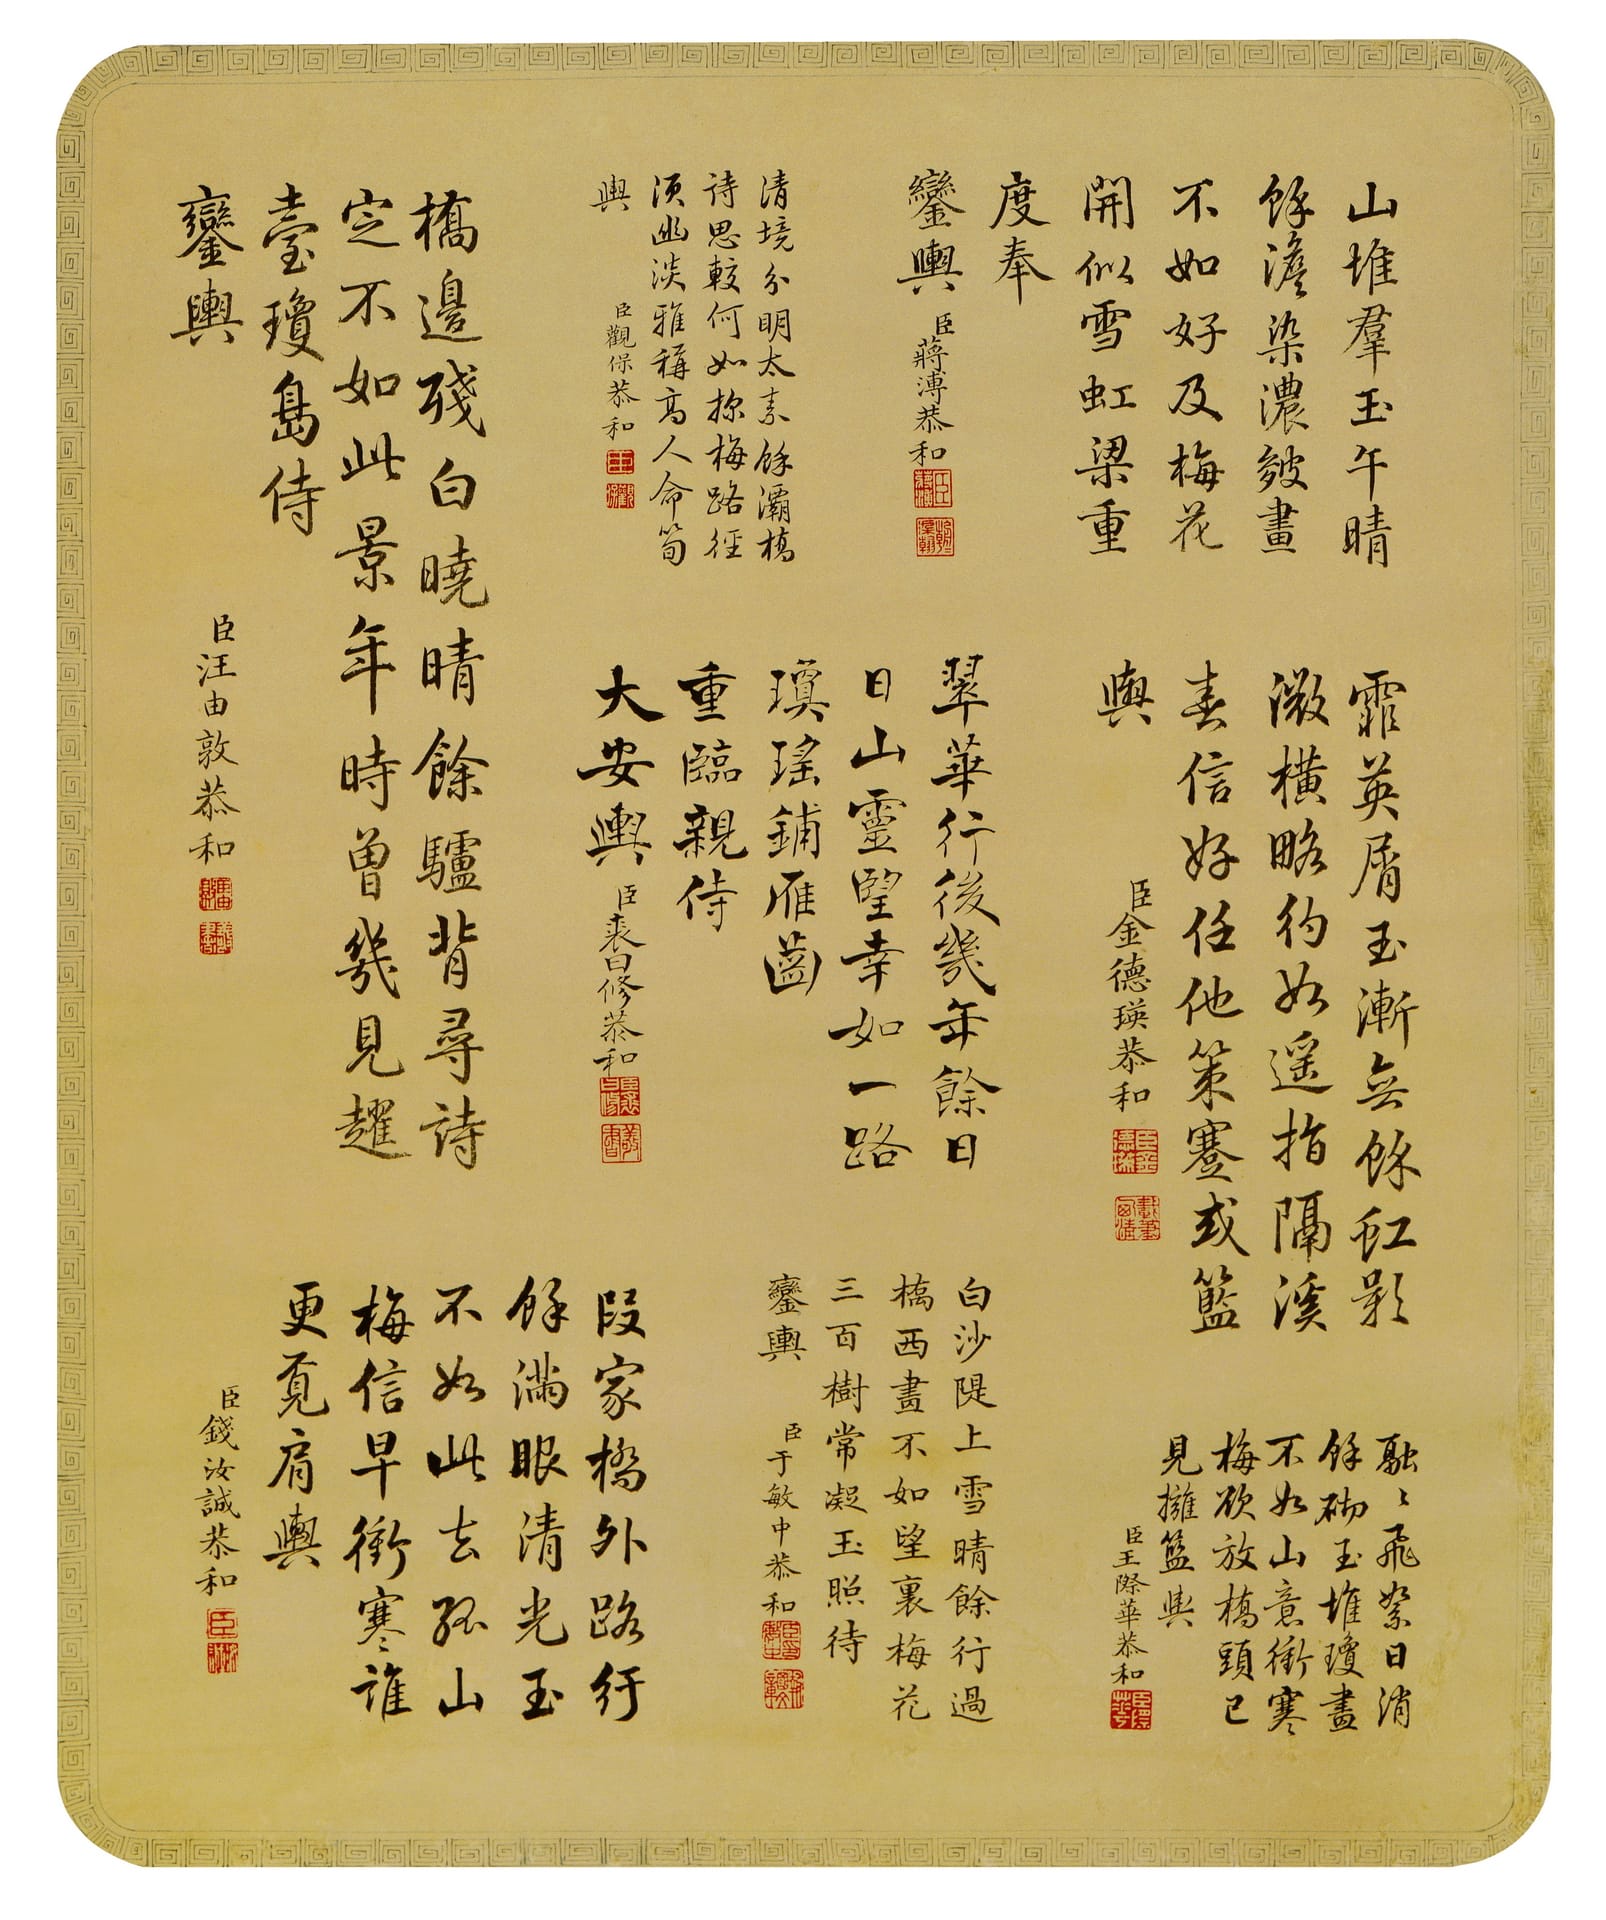 山堆羣玉午晴
餘澹染濃皴畫
不如好及梅花
開似雪虹梁重
度奉
鑾輿
臣蔣溥恭和
清境分明太素餘灞橋
詩思較何如探梅路徑
須幽淡雅稱高人命筍
輿
臣觀保恭和
橋邊殘白曉晴餘驢背尋詩
定不如此景年時曾幾見趯
臺瓊島侍
鑾輿
臣汪由敦恭和
霏英屑玉漸無餘虹影
微橫略彴如遥指隔溪
春信好任他策蹇或籃
輿
臣金德瑛恭和
翠華行後幾年餘日
日山靈望幸如一路
瓊瑤鋪雁齒
重臨親侍
大安輿
臣裘曰修恭和
融〻飛絮日消
餘砌玉堆瓊畫
不如山意衝寒
梅欲放橋頭已
見擁籃輿
臣王際華恭和
白沙隄上雪晴餘行過
橋西畫不如望裏梅花
三百樹常凝玉照待
鑾輿
臣于敏中恭和
段家橋外路行
餘滿眼清光玉
不如此去孤山
梅信早衝寒誰
更覓肩輿
臣錢汝誠恭和